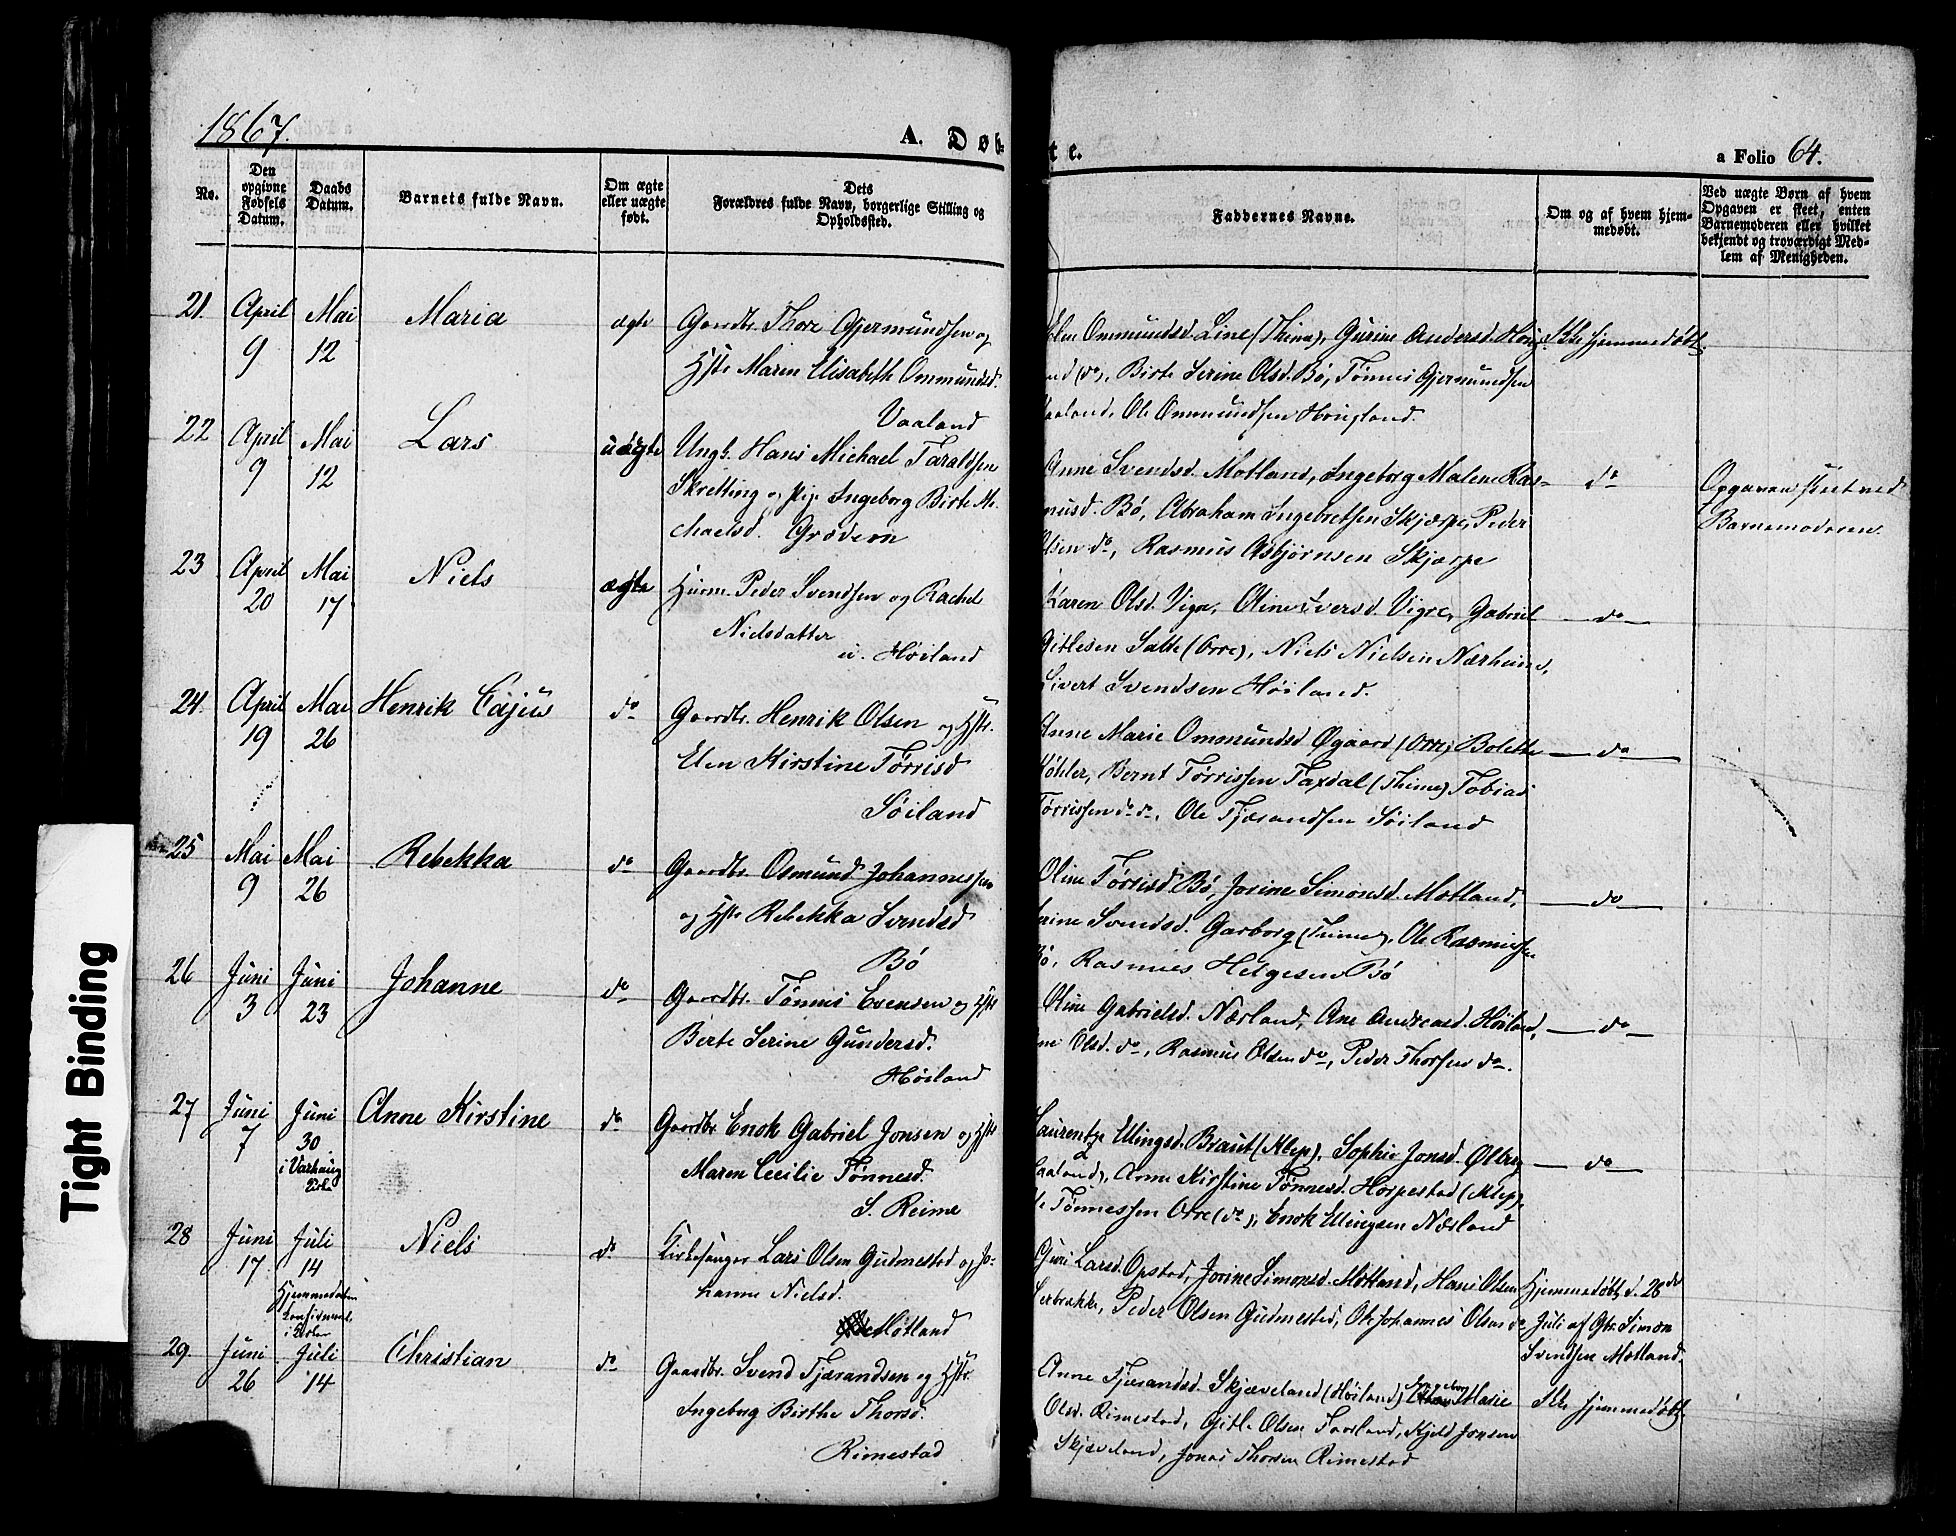 1867.
A. Døb-
te.
a Folio 64.
No.
Den opgivne Fødsels Datum.
Daabs Datum.
Barnets fulde Navn.
Om ægte eller uægte født.
Dets Forældres fulde Navn, borgerlige Stilling og Opholdssted.
Faddernes Navne.
Om og af hvem hjem-
medøbt.
Ved uægte Børn af hvem
Opgaven er skeet, enten
Barnemoderen eller hvilket
bekjendt og troværdigt Med-
lem af Menigheden.
21. April 9 Mai 12 Maria ægte
Gaardbr. Thore Gjermundsen og
Hstr. Maren Elisabeth Ommundsd.
Vaaland
Ommundsd. Line (Thime), Gurine Andersd. Houg-
land (do), Birte Serine Olsd. Bø, Tønnes Gjermundsen
Vaaland, Ole Ommundsen Hougland.
Ikke hjemmedøbt.
22 April 9 Mai 12 Lars uægte
Ungk. Hans Michael Taraldsen
Skretting og Pige Ingeborg Birte Mi-
chaelsd. Grødem
Anne Svendsd. Motland, Ingeborg Malene Ras-
musd. Bø, Abraham Ingebretsen Skjærpe, Peder
Olsen do, Rasmus Asbjørnsen Skjærpe
do
Opgaven skeet ved
Barnemoderen.
23 April 20 Mai 17 Niels ægte
Huusm. Peder Svendsen og Rachel
Nielsdatter
u. Høiland
Karen Olsd. Vigre, Oline Siversd. Vigre, Gabriel
Gitlesen Salte (Orre), Niels Nielsen Nærheim,
Sivert Svendsen Høiland.
do
24. April 19 Mai 26 Henrik Cajus do
Gaardbr. Henrik Olsen og Hstr.
Elen Kirstine Tørrisd
Søiland
Anne Marie Ommundsd Øgaard (Orre) Bolette
Køhler, Bernt Tørrissen Taxdal (Thime) Tobias
Tørrissen do do, Ole Tjærandsen Søiland
do
25 Mai 9 Mai 26 Rebekka do
Gaardbr. Osmund Johannessen
og Hstr Rebekka Svendsd
Bø
Oline Tørrisd. Bø, Josine Simonsd. Motland,
Serine Svendsd. Garborg (Thime), Ole Rasmussen
Bø, Rasmus Helgesen Bø
do
26 Juni 3 Juni 23 Johanne do
Gaardbr. Tønnes Evensen og Hstr
Berte Serine Gundersd.
Høiland
Oline Gabrielsd. Nærland, Ane Andreasd. Høiland,
Olsd. do, Rasmus Olsen do, Peder Thorsen do.
do
27 Juni 7 Juni 30 i Varhaug Kirke Anne Kirstine do
Gaardbr. Enok Gabriel Jonsen og Hstr
Maren Cecilie Tønnesd.
S. Reime
Laurentze Ellingsd. Braut (Klep), Sophie Jonsd. Ølberg
Anne Kirstine Tønnesd. Horpestad (Klep),
Tønnessen Orre (do), Enok Ellingsen Nærland
do
28 Juni 17 Juli 14 Hjemmedaaben i Kirken Niels do
Kirkesanger Lars Olsen Gudmestad og Jo-
hanne Nielsd.
Motland
Guri Larsd. Opstad, Josine Simonsd. Motland, Hans Olsen
Serbrække, Peder Olsen Gudmestad, Ole Johannes Olsen do
Hjemmedøbt d. 28de
Juli af Gbr. Simon
Svendsen Motland.
29. Juni 26 Juli 14 Christian do
Gaardbr. Svend Tjærandsen og Hstr.
Ingeborg Birthe Thorsd.
Rimestad
Anne Tjærandsd. Skjæveland (Høiland) Ingeborg Marie
Olsd. Rimestad, Gitle Olsen Taarland, Kjeld Jonsen
Skjæveland, Jonas Thorsen Rimestad
Ikke hjemmedøbt.
Tight Binding